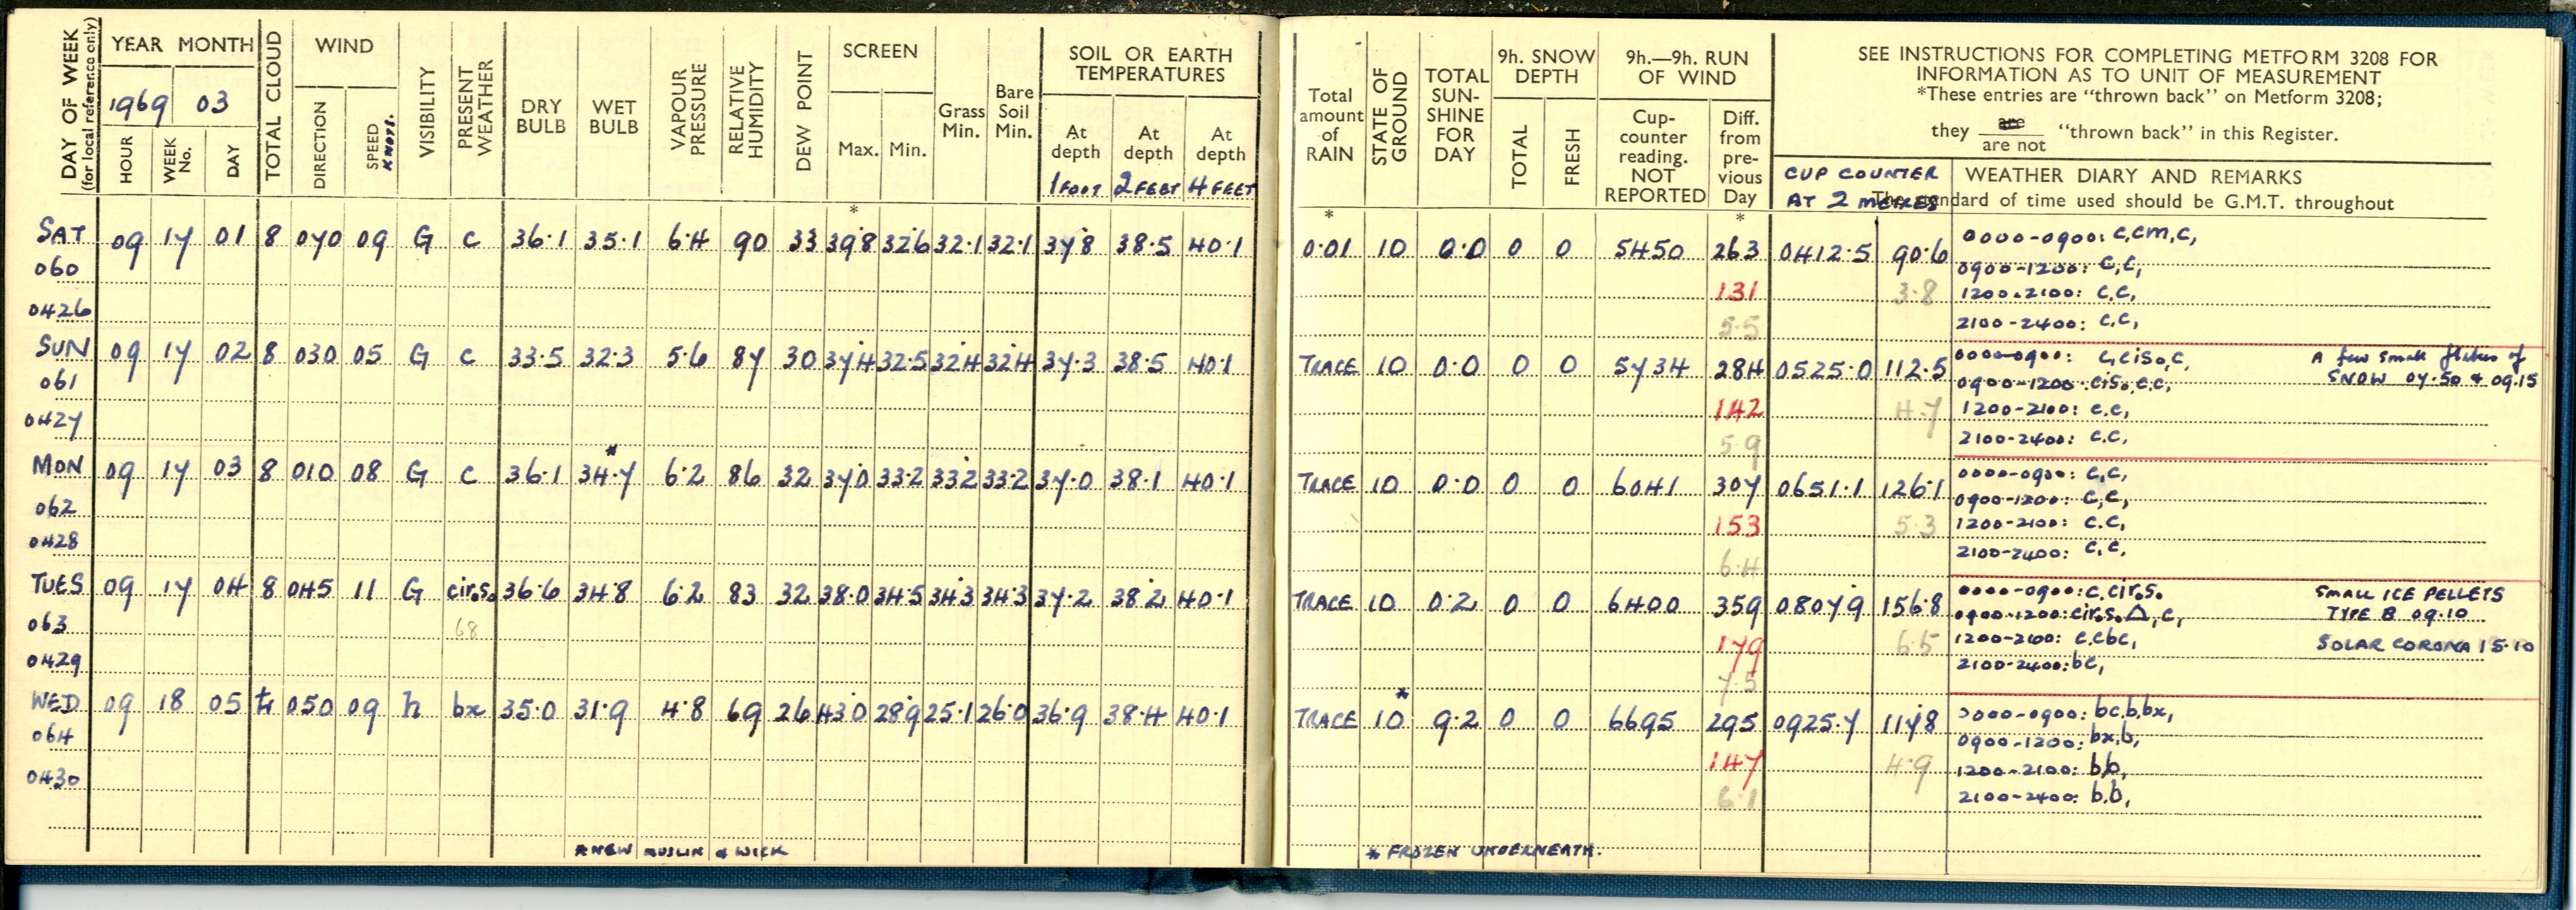 DAY OF WEEK
(for local reference only)
YEAR MONTH
1969 03
HOUR
WEEK No.
DAY
TOTAL CLOUD
WIND
DIRECTION
SPEED KNOTS.
VISIBILITY
PRESENT WEATHER
DRY BULB
WET BULB
VAPOUR PRESSURE
RELATIVE HUMIDITY
DEW POINT
SCREEN
Max. Min.
*
Grass Min.
Bare Soil Min.
SOIL OR EARTH TEMPERATURES
At depth 1 FOOT
At depth 2 FEET
At depth 4 FEET
Total amount of RAIN
*
STATE OF GROUND
TOTAL SUN-SHINE FOR DAY
9h. SNOW DEPTH
TOTAL
FRESH
9h.—9h. RUN OF WIND
Cup-counter reading. NOT REPORTED
Diff. from pre-vious Day
*
SEE INSTRUCTIONS FOR COMPLETING METFORM 3208 FOR
INFORMATION AS TO UNIT OF MEASUREMENT
*These entries are "thrown back" on Metform 3208;
they are / are not "thrown back" in this Register.
CUP COUNTER
AT 2 METRES
WEATHER DIARY AND REMARKS
The standard of time used should be G.M.T. throughout
SAT 09 17 01 8 070 09 G c 36.1 35.1 6.4 90 33 39.8 32.6 32.1 32.1 37.8 38.5 40.1 0.01 10 0.0 0 0 5450 263 0412.5 90.6 0000-0900: c,cm,c,
060 0900-1200: c,c,
131 3.8 1200-2100: c.c,
0426 5.5 2100-2400: c.c,
SUN 09 17 02 8 030 05 G c 33.5 32.3 5.6 87 30 37.4 32.5 32.4 32.4 37.3 38.5 40.1 TRACE 10 0.0 0 0 5734 284 0525.0 112.5 0000-0900: c,cisₒ,c, A few small flakes of
061 0900-1200: cisₒ.c.c, SNOW 07.50 & 09.15
142 4.7 1200-2100: c.c,
0427 5.9 2100-2400: c.c,
MON 09 17 03 8 010 08 G c 36.1 34.7* 6.2 86 32 37.0 33.2 33.2 33.2 37.0 38.1 40.1 TRACE 10 0.0 0 0 6041 307 0651.1 126.1 0000-0900: c,c,
062 0900-1200: c,c,
153 5.3 1200-2100: c.c,
0428 6.4 2100-2400: c.c,
TUES 09 17 04 8 045 11 G cirₒsₒ 36.6 34.8 6.2 83 32 38.0 34.5 34.3 34.3 37.2 38.2 40.1 TRACE 10 0.2 0 0 6400 359 0807.9 156.8 0000-0900: c.cirₒsₒ SMALL ICE PELLETS
063 68 0900-1200: cirₒsₒ△,c, TYPE B 09.10
179 6.5 1200-2100: c.cbc, SOLAR CORONA 15.10
0429 7.5 2100-2400: bc,
WED 09 18 05 09 h bx 35.0 31.9 4.8 69 26 43.0 28.9 25.1 26.0 36.9 38.4 40.1 TRACE 10* 9.2 0 0 6695 295 0925.7 117.8 0000-0900: bc.b.bx,
064 0900-1200: bx,b,
147 4.9 1200-2100: b.b,
0430 6.1 2100-2400: b.b,
* NEW MUSLIN & WICK
* FROZEN UNDERNEATH.